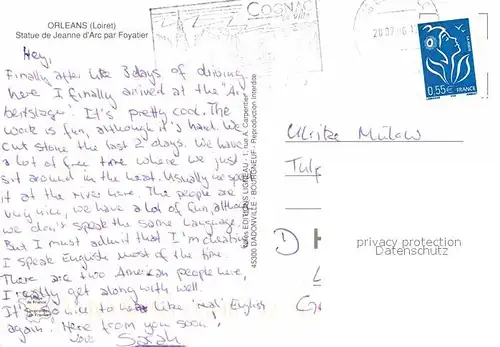 ORLEANS (Loiret)
Statue de Jeanne d'Arc par Foyatier
Hey,
Finally after like 3 days of driving
here I finally arrived at the "Ar
beitslage". It's pretty cool. The
work is fun, although it's hard. We
cut stone the last 2 days. We have
a lot of free time where we just
sit around in the heat. Usually we spe
it at the river here. The people are
very nice, we have a lot of fun, althou
we don't speak the same language.
But I must admit that I'm cheating
I speak English most of the time.
There are two American people here,
I really get along with well.
It's so nice to hear like 'real' English
again! Hear from you soon!
Sarah
Edition EDITIONS LIGNEAU - 1, rue A. Carpentier
45300 DADONVILLE - BOURGNEUF - Reproduction interdite
COGNAC
La Ville
20.07.06
0,55€ FRANCE
Ulrike
Tulp
D
privacy protection
Datenschutz